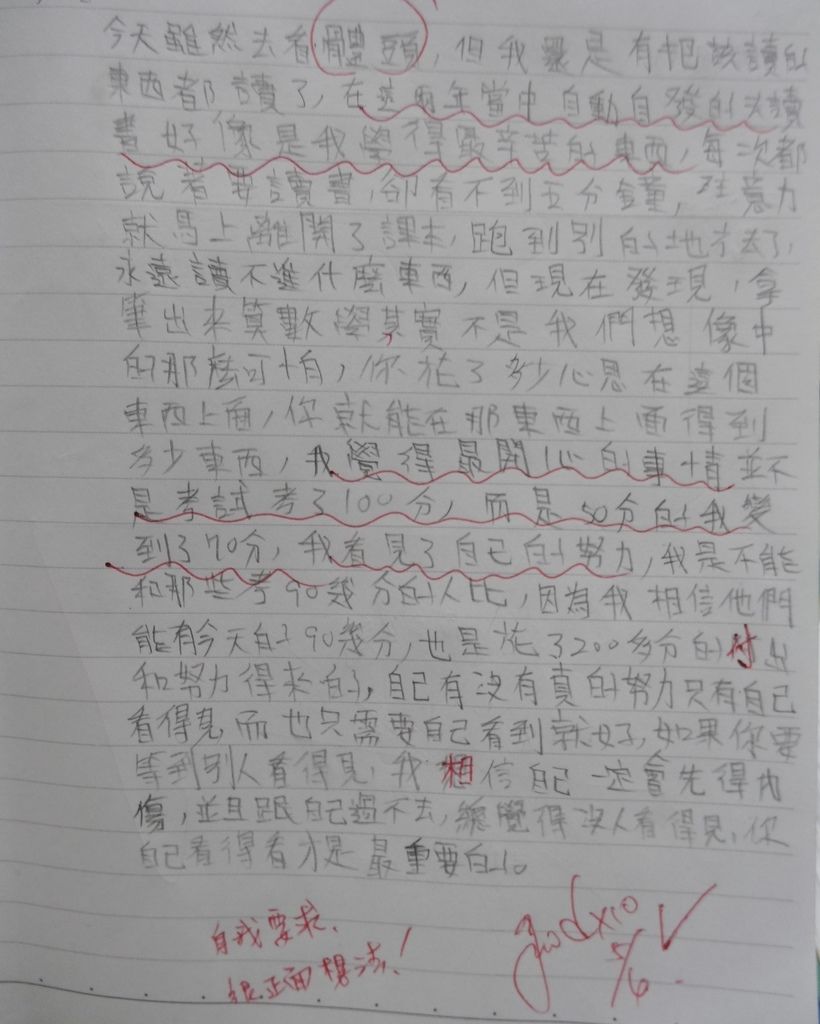 今天雖然去看體頭，但我還是有把該讀的
東西都讀了，在這兩年當中自動自發的去讀
書好像是我學得最辛苦的東西，每次都
說著要讀書，卻看不到五分鐘，注意力
就馬上離開了課本，跑到別的地方去了，
永遠讀不進什麼東西，但現在發現，拿
筆出來算數學其實不是我們想像中
的那麼可怕，你花了多少心思在這個
東西上面，你就能在那東西上面得到
多少東西，我覺得最開心的事情並不
是考試考了100分，而是50分的我變
到了70分，我看見了自己的努力，我是不能
和那些考90幾分的人比，因為我相信他們
能有今天的90幾分，也是花了200多分的付出
和努力得來的，自己有沒有真的努力只有自己
看得見而也只需要自己看到就好，如果你要
等到別人看得見，我相信自己一定會先得內
傷，並且跟自己過不去，總覺得沒人看得見，你
自己看得看才是最重要的。
自我要求，
很正面想法！
good x10
5/6